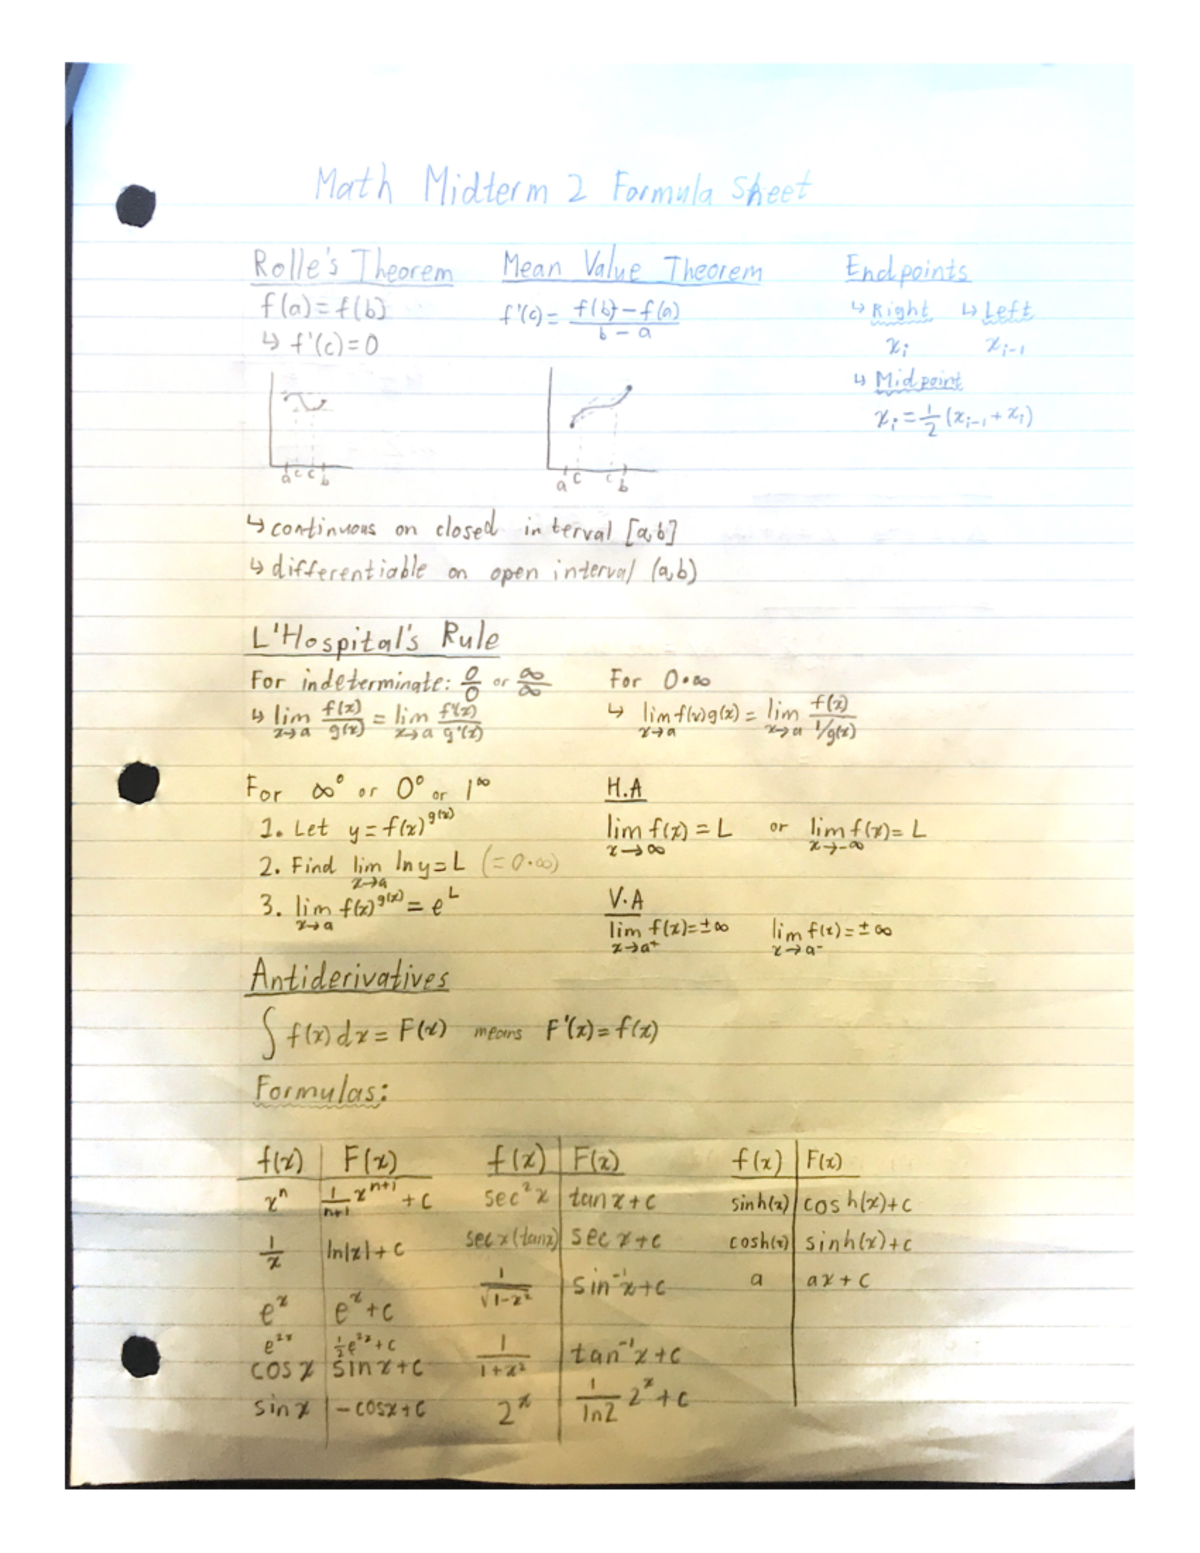 Math Midterm 2 Formula Sheet
Rolle's Theorem
f(a)=f(b)
↳ f'(c)=0
a c c b
Mean Value Theorem
f'(c)= f(b)-f(a) / b-a
a c c b
Endpoints
↳ Right ↳ Left
xᵢ xᵢ₋₁
↳ Midpoint
xᵢ = 1/2 (xᵢ₋₁ + xᵢ)
↳ continuous on closed interval [a,b]
↳ differentiable on open interval (a,b)
L'Hospital's Rule
For indeterminate: 0/0 or ∞/∞
↳ lim x→a f(x)/g(x) = lim x→a f'(x)/g'(x)
For 0·∞
↳ lim x→a f(x)g(x) = lim x→a f(x)/(1/g(x))
For ∞⁰ or 0⁰ or 1^∞
1. Let y=f(x)^g(x)
2. Find lim x→a ln y = L (=0·∞)
3. lim x→a f(x)^g(x) = e^L
H.A
lim x→∞ f(x) = L or lim x→-∞ f(x) = L
V.A
lim x→a⁺ f(x)=±∞ lim x→a⁻ f(x)=±∞
Antiderivatives
∫ f(x) dx = F(x) means F'(x) = f(x)
Formulas:
f(x) | F(x)
xⁿ | 1/(n+1) x^(n+1) + C
1/x | ln|x| + C
e^x | e^x + C
e^2x | 1/2 e^2x + C
cos x | sin x + C
sin x | -cos x + C
f(x) | F(x)
sec²x | tan x + C
sec x (tan x) | sec x + C
1/√(1-x²) | sin⁻¹x + C
1/(1+x²) | tan⁻¹x + C
2^x | 1/ln2 2^x + C
f(x) | F(x)
sinh(x) | cosh(x) + C
cosh(x) | sinh(x) + C
a | ax + C